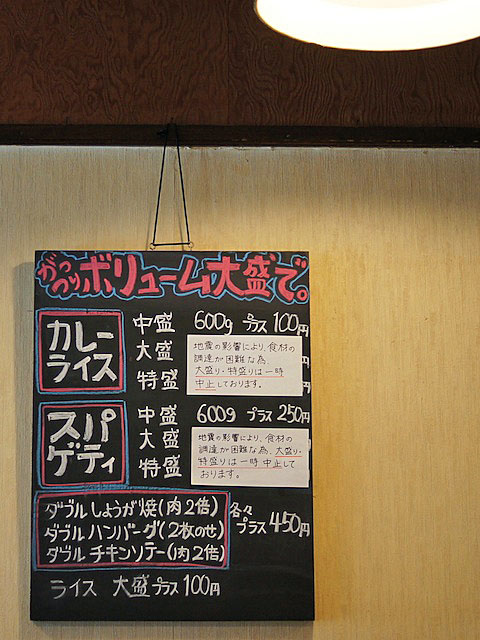 がっつりボリューム大盛で。
カレーライス
中盛 600g プラス 100円
大盛
特盛
地震の影響により、食材の
調達が困難な為、
大盛り・特盛りは一時
中止しております。
スパゲティ
中盛 600g プラス 250円
大盛
特盛
地震の影響により、食材の
調達が困難な為、大盛り・
特盛りは一時中止して
おります。
ダブルしょうが焼(肉2倍)
ダブルハンバーグ(2枚のせ)
ダブルチキンソテー(肉2倍)
各々プラス450円
ライス 大盛プラス100円